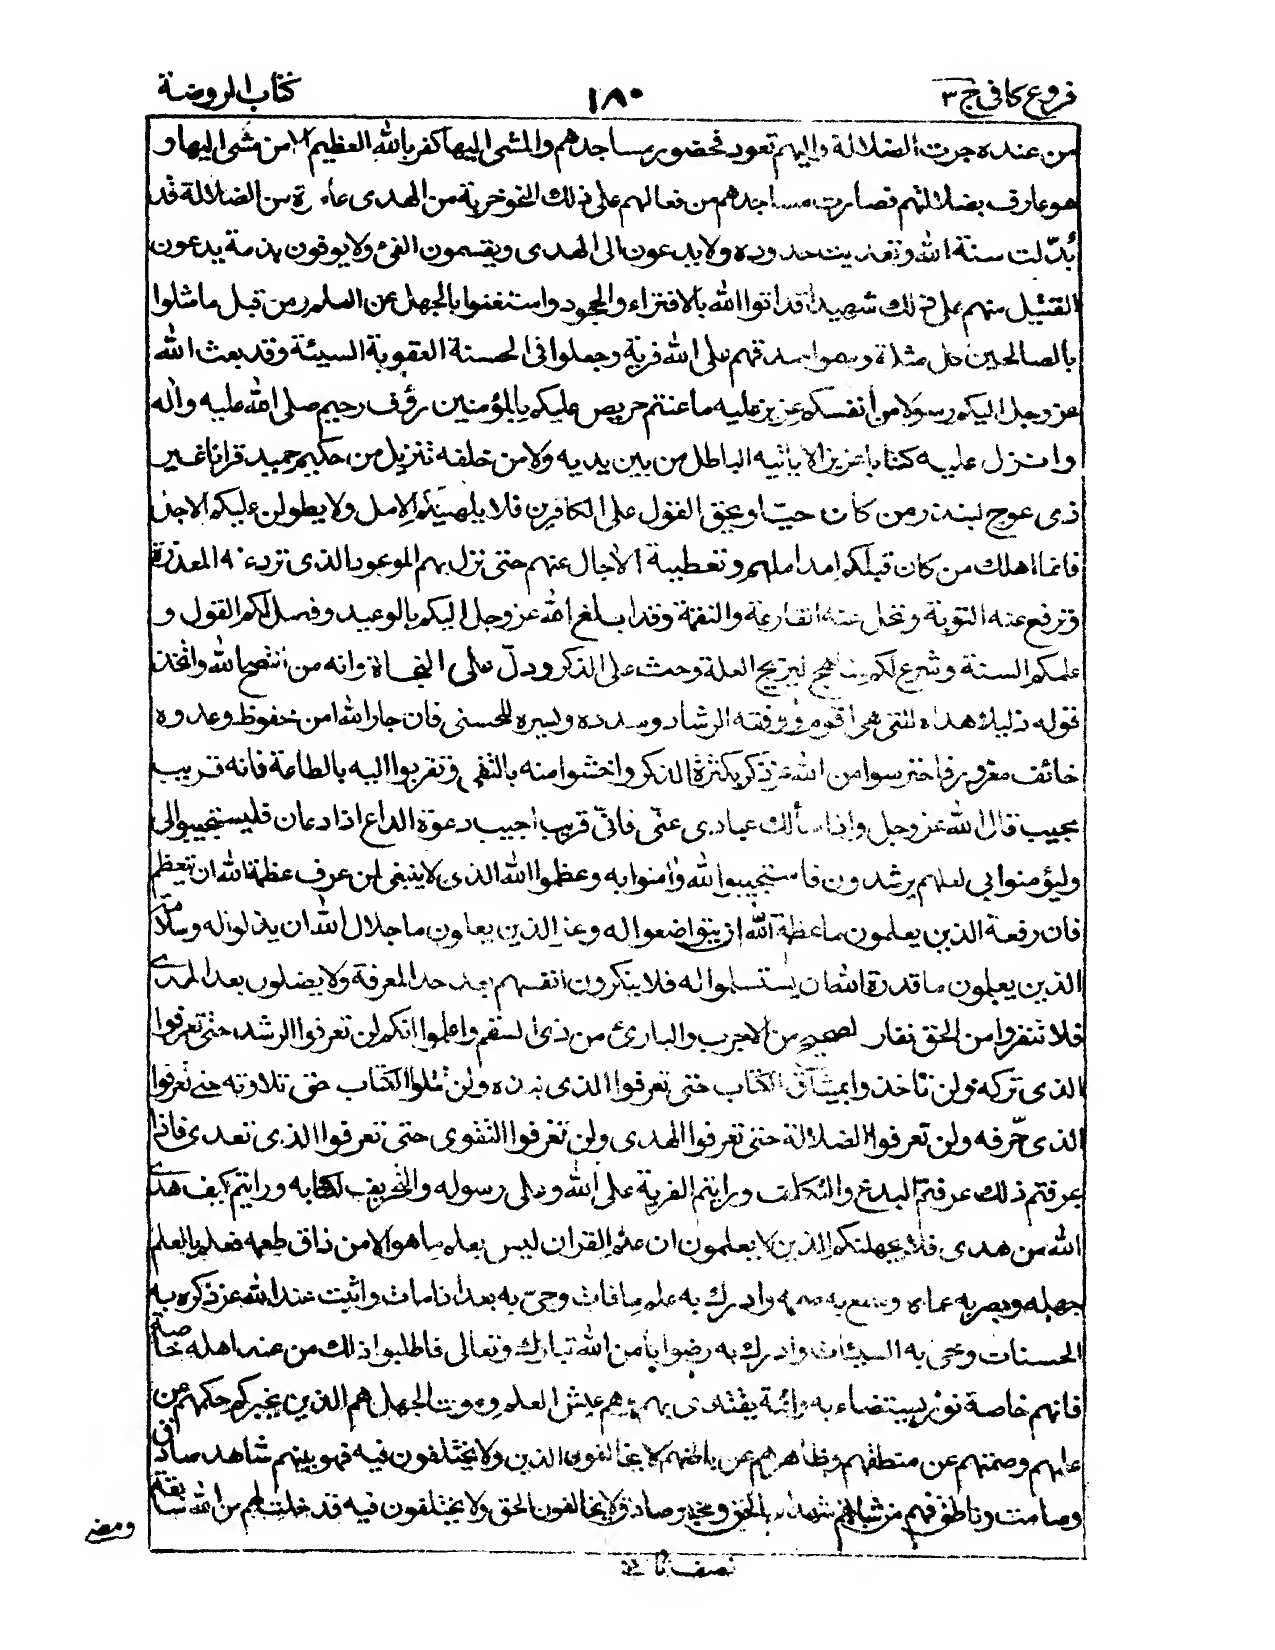 فروع كافى ج ٣
١٨٠
كتاب الروضة
من عنده جرت الضلالة واليهم تعود فحضور مساجدهم والمشى اليها كفر بالله العظيم الا من مشى اليها و
هو عارف بضلالتهم فصارت مساجدهم من فعالهم على ذلك النحو خربة من الهدى عامرة من الضلالة قد
بُدّلت سنة الله وتعديت حدوده ولا يدعون الى الهدى ويقسمون الفئ ولا يوفون بذمة يدعون
القتيل منهم على ذلك شهيدا قد اتوا الله بالافتراء والجحود واستغنوا بالجهل عن العلم ومن قبل ما مثلوا
بالصالحين كل مثلة وسموا صدقهم على الله فرية وجعلوا فى الحسنة العقوبة السيئة وقد بعث الله
عز وجل اليكم رسولا من أنفسكم عزيز عليه ما عنتم حريص عليكم بالمؤمنين رؤف رحيم صلى الله عليه واله
وانزل عليه كتابا عزيزا لا ياتيه الباطل من بين يديه ولا من خلفه تنزيل من حكيم حميد قرانا غير
ذى عوج لينذر من كان حيا ويحق القول على الكافرين فلا يلهينكم الامل ولا يطولن عليكم الاجل
فانما اهلك من كان قبلكم امد املهم وتغطية الاجال عنهم حتى نزل بهم الموعود الذى ترد عنه المعذرة
وترفع عنه التوبة وتحل معه القارعة والنقمة وقد ابلغ الله عز وجل اليكم بالوعيد وفصل لكم القول و
علمكم السنة وشرع لكم المناهج ليزيح العلة وحث على الذكر ودلّ على النجاة وانه من انتصح لله واتخذ
قوله دليلا هداه للتى هى اقوم ووفقه للرشاد وسدده ويسره للحسنى فان جار الله امن محفوظ وعدوه
خائف مغرور فاحترسوا من الله عز ذكره بكثرة الذكر واخشوا منه بالتقى وتقربوا اليه بالطاعة فانه قريب
مجيب قال الله عز وجل واذا سألك عبادى عنّى فانّى قريب اجيب دعوة الداع اذا دعان فليستجيبوا لى
وليؤمنوا بى لعلهم يرشدون فاستجيبوا لله وامنوا به وعظموا الله الذى لا ينبغى لمن عرف عظمة الله ان يتعظم
فان رفعة الذين يعلمون ما عظمة الله ان يتواضعوا له وعز الذين يعلمون ما جلال الله ان يذلوا له وسلامة
الذين يعلمون ما قدرة الله ان يستسلموا له فلا ينكرون انفسهم بعد حد المعرفة ولا يضلون بعد الهدى
فلا تنفروا من الحق نفار الصحيح من الاجرب والبارئ من ذى السقم واعلموا انكم لن تعرفوا الرشد حتى تعرفوا
الذى تركه ولن تاخذوا بميثاق الكتاب حتى تعرفوا الذى نبذه ولن تتلوا الكتاب حق تلاوته حتى تعرفوا
الذى حرّفه ولن تعرفوا الضلالة حتى تعرفوا الهدى ولن تعرفوا التقوى حتى تعرفوا الذى تعدى فاذا
عرفتم ذلك عرفتم البدع والتكلف ورايتم الفرية على الله وعلى رسوله والتحريف لكتابه ورايتم كيف هدى
الله من هدى فلا يجهلنكم الذين لا يعلمون ان علم القران ليس يعلم ما هو الا من ذاق طعمه فعلم بالعلم
جهله وبصر به عماه وسمع به صممه وادرك به علم ما فات وحيى به بعد اذ مات واثبت عند الله عز ذكره به
الحسنات ومحى به السيئات وادرك به رضوانا من الله تبارك وتعالى فاطلبوا ذلك من عند اهله خاصة
فانهم خاصة نور يستضاء به وائمة يقتدى بهم وهم عيش العلم وموت الجهل هم الذين يخبركم حكمهم عن
علمهم وصمتهم عن منطقهم وظاهرهم عن باطنهم لا يخالفون الدين ولا يختلفون فيه فهو بينهم شاهد صادق
وصامت وناطق فهم من شانهم شهداء بالحق ومخبر صادق لا يخالفون الحق ولا يختلفون فيه قد خلت لهم من الله سابقة
ومضى